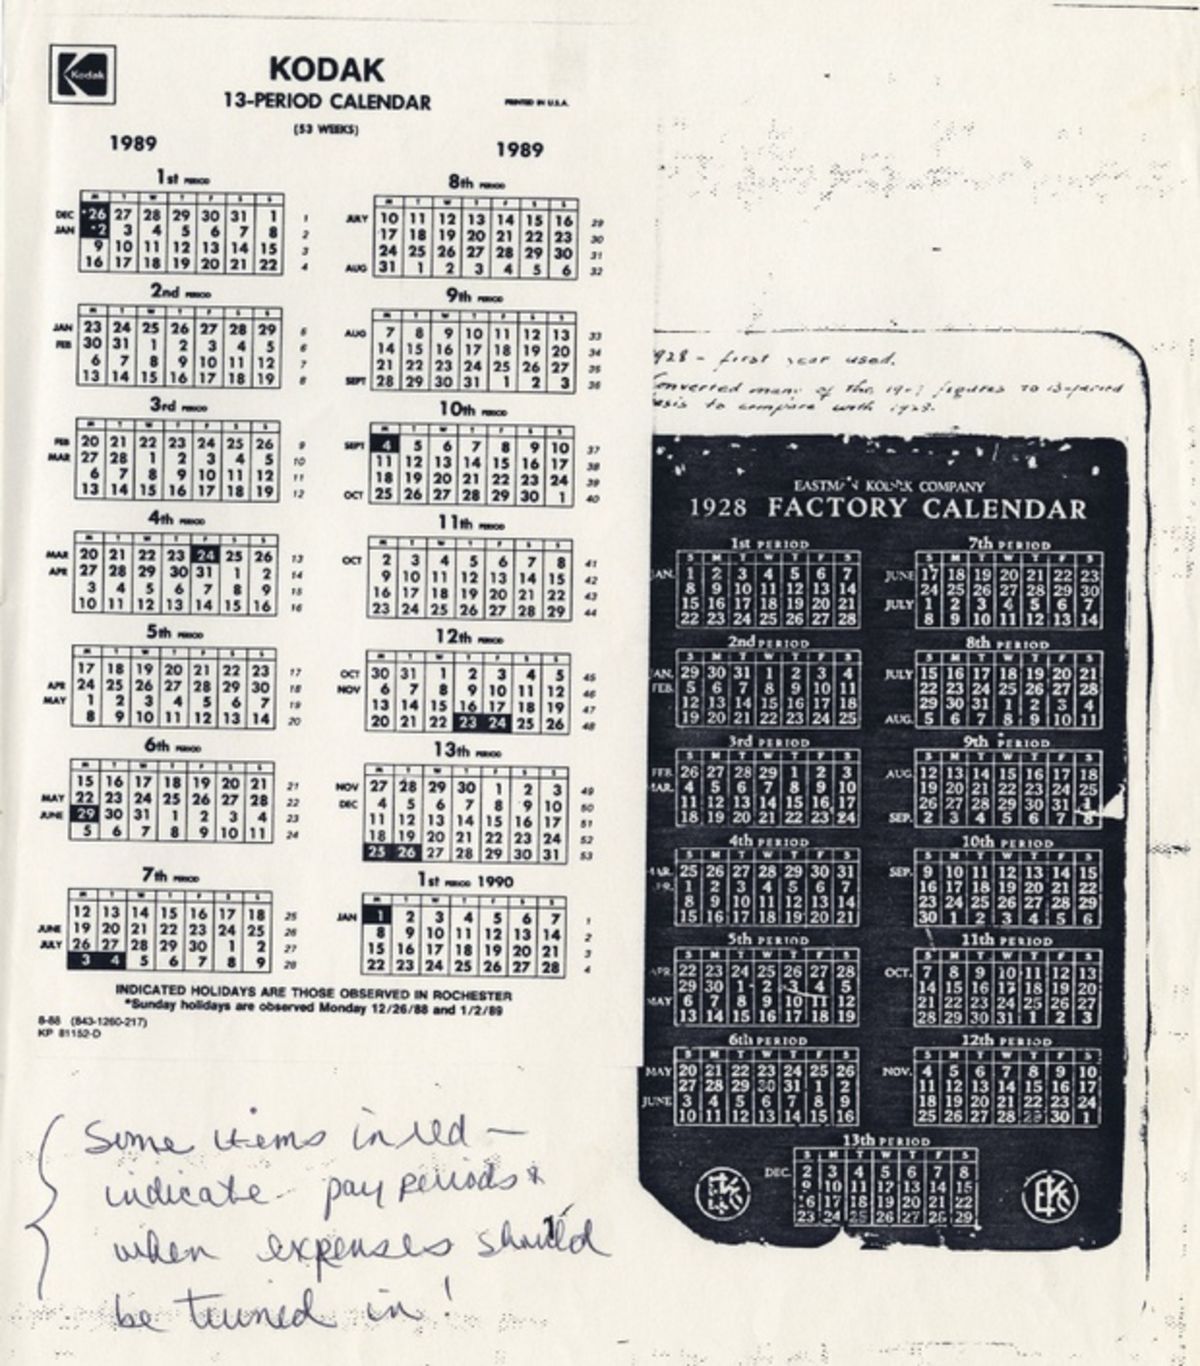 Kodak
KODAK
13-PERIOD CALENDAR
PRINTED IN U.S.A.
(53 WEEKS)
1989
1st PERIOD
M T W T F S S
DEC *26 27 28 29 30 31 1 1
JAN *2 3 4 5 6 7 8 2
9 10 11 12 13 14 15 3
16 17 18 19 20 21 22 4
2nd PERIOD
M T W T F S S
JAN 23 24 25 26 27 28 29 5
FEB 30 31 1 2 3 4 5 6
6 7 8 9 10 11 12 7
13 14 15 16 17 18 19 8
3rd PERIOD
M T W T F S S
FEB 20 21 22 23 24 25 26 9
MAR 27 28 1 2 3 4 5 10
6 7 8 9 10 11 12 11
13 14 15 16 17 18 19 12
4th PERIOD
M T W T F S S
MAR 20 21 22 23 24 25 26 13
APR 27 28 29 30 31 1 2 14
3 4 5 6 7 8 9 15
10 11 12 13 14 15 16 16
5th PERIOD
M T W T F S S
17 18 19 20 21 22 23 17
APR 24 25 26 27 28 29 30 18
MAY 1 2 3 4 5 6 7 19
8 9 10 11 12 13 14 20
6th PERIOD
M T W T F S S
15 16 17 18 19 20 21 21
MAY 22 23 24 25 26 27 28 22
JUNE 29 30 31 1 2 3 4 23
5 6 7 8 9 10 11 24
7th PERIOD
M T W T F S S
12 13 14 15 16 17 18 25
JUNE 19 20 21 22 23 24 25 26
JULY 26 27 28 29 30 1 2 27
3 4 5 6 7 8 9 28
1989
8th PERIOD
M T W T F S S
JULY 10 11 12 13 14 15 16 29
17 18 19 20 21 22 23 30
24 25 26 27 28 29 30 31
AUG 31 1 2 3 4 5 6 32
9th PERIOD
M T W T F S S
AUG 7 8 9 10 11 12 13 33
14 15 16 17 18 19 20 34
21 22 23 24 25 26 27 35
SEPT 28 29 30 31 1 2 3 36
10th PERIOD
M T W T F S S
SEPT 4 5 6 7 8 9 10 37
11 12 13 14 15 16 17 38
18 19 20 21 22 23 24 39
OCT 25 26 27 28 29 30 1 40
11th PERIOD
M T W T F S S
OCT 2 3 4 5 6 7 8 41
9 10 11 12 13 14 15 42
16 17 18 19 20 21 22 43
23 24 25 26 27 28 29 44
12th PERIOD
M T W T F S S
OCT 30 31 1 2 3 4 5 45
NOV 6 7 8 9 10 11 12 46
13 14 15 16 17 18 19 47
20 21 22 23 24 25 26 48
13th PERIOD
M T W T F S S
NOV 27 28 29 30 1 2 3 49
DEC 4 5 6 7 8 9 10 50
11 12 13 14 15 16 17 51
18 19 20 21 22 23 24 52
25 26 27 28 29 30 31 53
1st PERIOD 1990
M T W T F S S
JAN 1 2 3 4 5 6 7 1
8 9 10 11 12 13 14 2
15 16 17 18 19 20 21 3
22 23 24 25 26 27 28 4
INDICATED HOLIDAYS ARE THOSE OBSERVED IN ROCHESTER
*Sunday holidays are observed Monday 12/26/88 and 1/2/89
8-88 (843-1260-217)
KP 81152-D
Some items in red —
indicate pay periods &
when expenses should
be turned in!
1928 - first year used.
Converted many of the 1927 figures to 13-period
basis to compare with 1928.
EASTMAN KODAK COMPANY
1928 FACTORY CALENDAR
1st PERIOD
S M T W T F S
JAN. 1 2 3 4 5 6 7
8 9 10 11 12 13 14
15 16 17 18 19 20 21
22 23 24 25 26 27 28
2nd PERIOD
S M T W T F S
JAN. 29 30 31 1 2 3 4
FEB. 5 6 7 8 9 10 11
12 13 14 15 16 17 18
19 20 21 22 23 24 25
3rd PERIOD
S M T W T F S
FEB. 26 27 28 29 1 2 3
MAR. 4 5 6 7 8 9 10
11 12 13 14 15 16 17
18 19 20 21 22 23 24
4th PERIOD
S M T W T F S
MAR. 25 26 27 28 29 30 31
APR. 1 2 3 4 5 6 7
8 9 10 11 12 13 14
15 16 17 18 19 20 21
5th PERIOD
S M T W T F S
APR. 22 23 24 25 26 27 28
29 30 1 2 3 4 5
MAY 6 7 8 9 10 11 12
13 14 15 16 17 18 19
6th PERIOD
S M T W T F S
MAY 20 21 22 23 24 25 26
27 28 29 30 31 1 2
JUNE 3 4 5 6 7 8 9
10 11 12 13 14 15 16
7th PERIOD
S M T W T F S
JUNE 17 18 19 20 21 22 23
24 25 26 27 28 29 30
JULY 1 2 3 4 5 6 7
8 9 10 11 12 13 14
8th PERIOD
S M T W T F S
JULY 15 16 17 18 19 20 21
22 23 24 25 26 27 28
29 30 31 1 2 3 4
AUG. 5 6 7 8 9 10 11
9th PERIOD
S M T W T F S
AUG. 12 13 14 15 16 17 18
19 20 21 22 23 24 25
26 27 28 29 30 31 1
SEP. 2 3 4 5 6 7 8
10th PERIOD
S M T W T F S
SEP. 9 10 11 12 13 14 15
16 17 18 19 20 21 22
23 24 25 26 27 28 29
30 1 2 3 4 5 6
11th PERIOD
S M T W T F S
OCT. 7 8 9 10 11 12 13
14 15 16 17 18 19 20
21 22 23 24 25 26 27
28 29 30 31 1 2 3
12th PERIOD
S M T W T F S
NOV. 4 5 6 7 8 9 10
11 12 13 14 15 16 17
18 19 20 21 22 23 24
25 26 27 28 29 30 1
13th PERIOD
S M T W T F S
DEC. 2 3 4 5 6 7 8
9 10 11 12 13 14 15
16 17 18 19 20 21 22
23 24 25 26 27 28 29
EKC
EKC